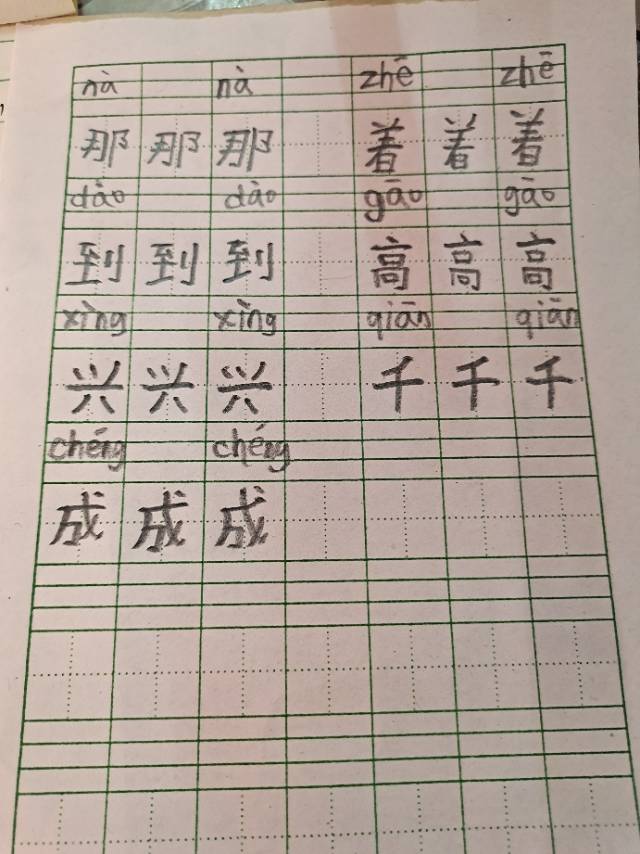 nà nà zhē zhē
那 那 那 着 着 着
dào dào gāo gāo
到 到 到 高 高 高
xìng xìng qiān qiān
兴 兴 兴 千 千 千
chéng chéng
成 成 成